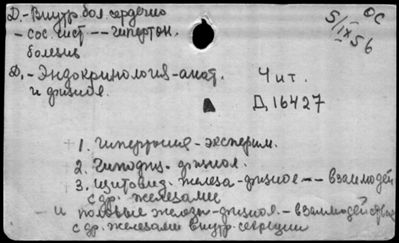 Д.-Внутр. бол. сердечно
-сос. сист. -- гипертон.
болезнь
Ф.-Эндокринология-анат.
и физиол.
ОС
5/IX 56
Чит.
Д 16427
1. Гипертония - эксперим.
2. Гипофиз - физиол.
3. Щитовид. железа - физиол. -- взаимодей
с др. железами
и половые железы - физиол. - взаимодействие
с др. железами внутр. секреции